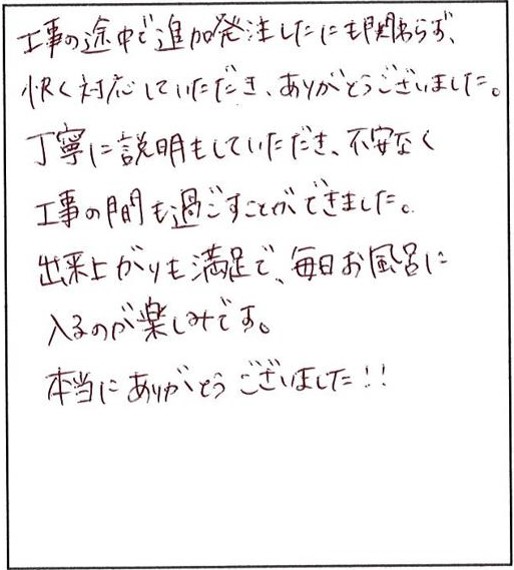 工事の途中で追加発注したにも関わらず、
快く対応していただき、ありがとうございました。
丁寧に説明もしていただき、不安なく
工事の間も過ごすことができました。
出来上がりも満足で、毎日お風呂に
入るのが楽しみです。
本当にありがとうございました!!